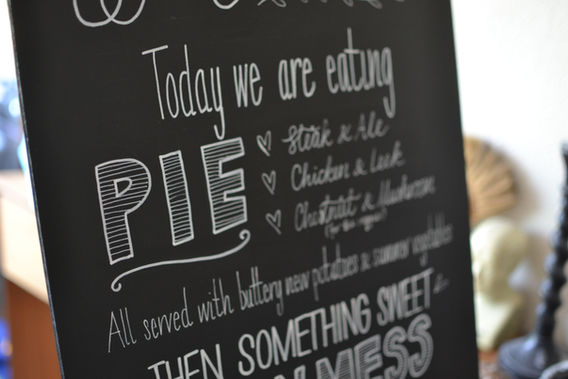 Today we are eating
PIE
Steak & Ale
Chicken & Leek
Chestnut & Mushroom
All served with buttery new potatoes & summer vegetables
THEN SOMETHING SWEET
MESS